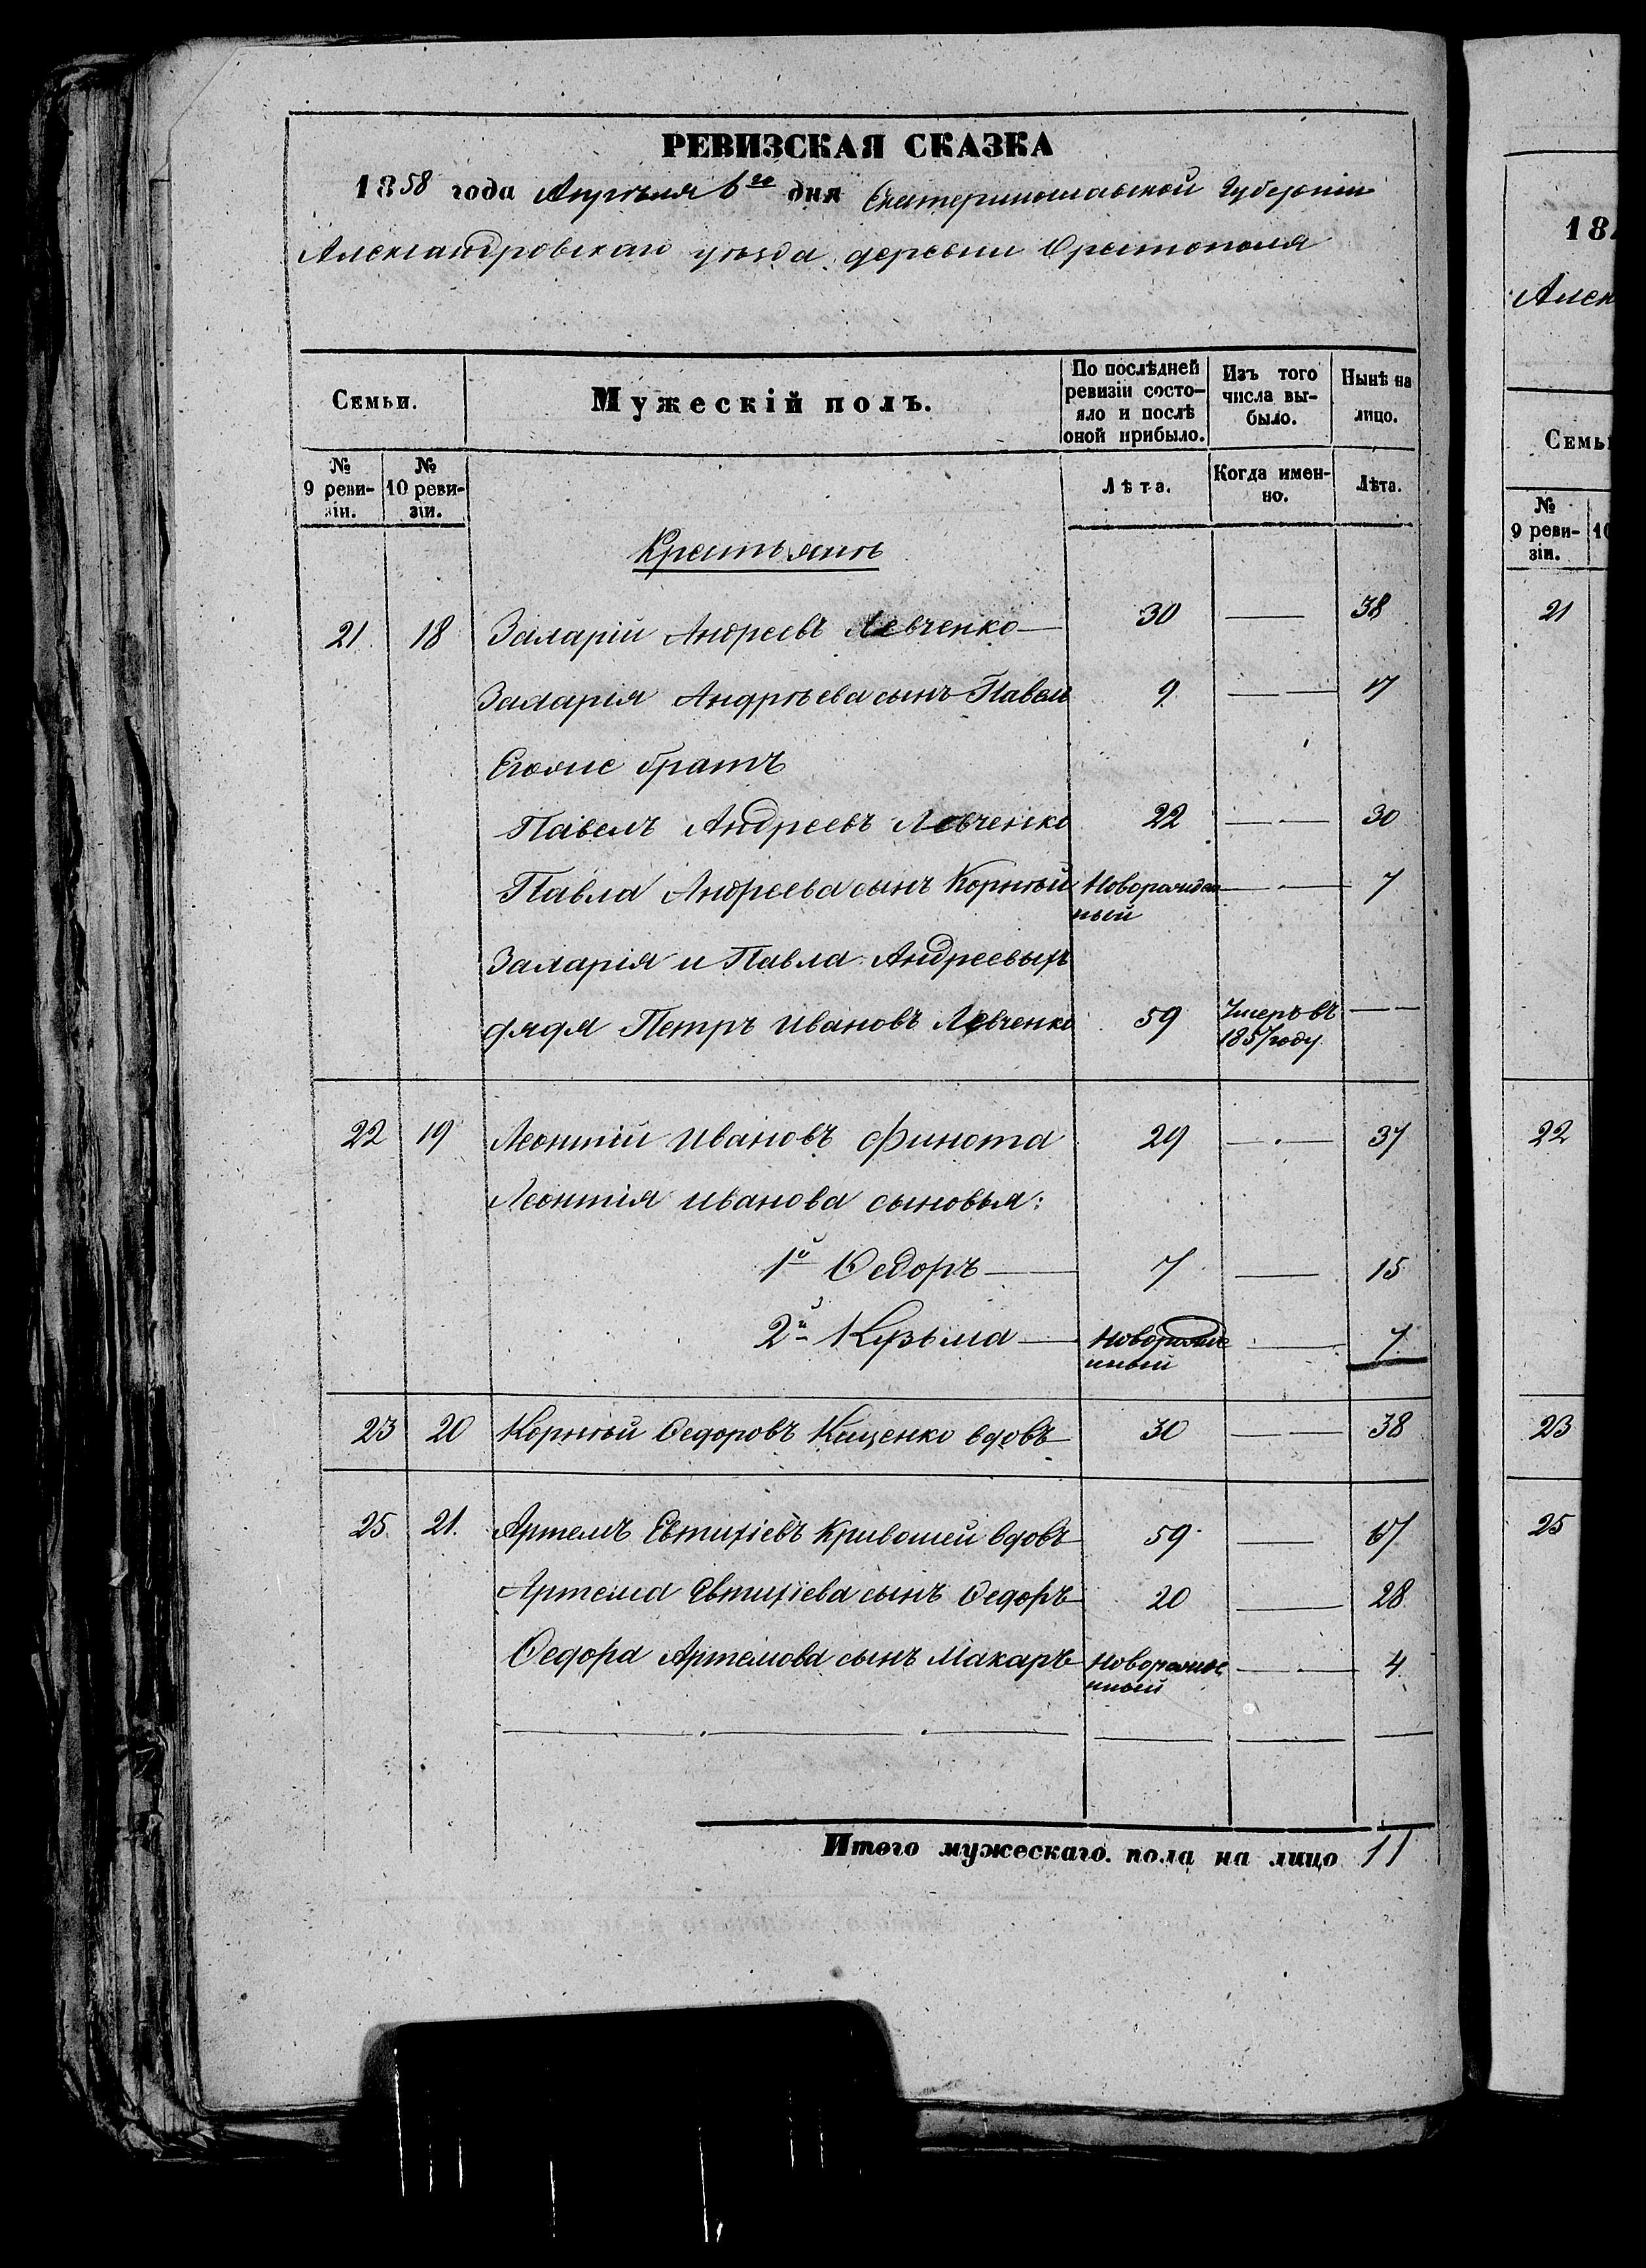 РЕВИЗСКАЯ СКАЗКА
1858 года Апрѣля 6го дня Екатеринославской Губерніи
Александровскаго уѣзда деревни Орестополя
Семьи.
Мужескій полъ.
По послѣдней ревизіи состояло и послѣ оной прибыло.
Изъ того числа выбыло.
Нынѣ на лицо.
№ 9 ревизіи.
№ 10 ревизіи.
Лѣта.
Когда именно.
Лѣта.
Крестьянѣ
21 18 Захарій Андреевъ Левченко 30 38
Захарія Андрѣева сынъ Павелъ 9 17
Егоже братъ
Павелъ Андреевъ Левченко 22 30
Павла Андреева сынъ Корнѣй Новорожденный 7
Захарія и Павла Андреевыхъ
дядя Петръ Ивановъ Левченко 59 Умеръ въ 1857 году
22 19 Леонтій Ивановъ Финота 29 37
Леонтія Иванова сыновья:
1й Ѳедоръ 7 15
2й Кузьма Новорожденный 7
23 20 Корнѣй Ѳедоровъ Кищенко вдовъ 30 38
25 21. Артемъ Евтихіевъ Кривошеи вдовъ 59 67
Артема Евтихіева сынъ Ѳедоръ 20 28
Ѳедора Артемова сынъ Макаръ Новорожденный 4
Итого мужескаго пола на лицо 11
18
Алек
Семь
№ 9 ревизіи.
21
22
23
25